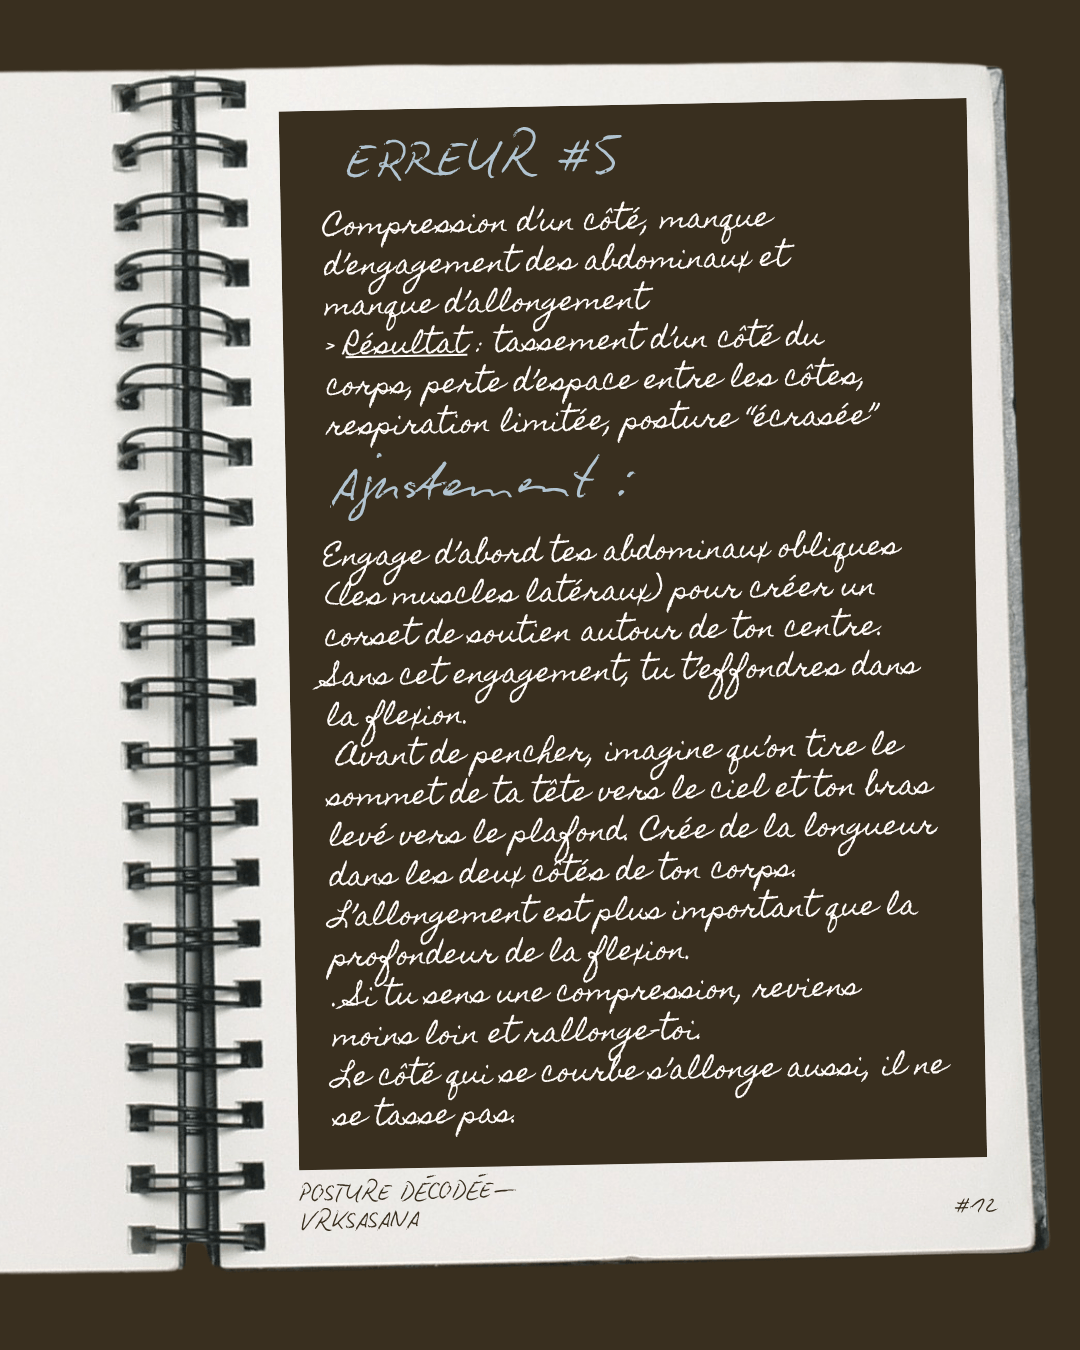 ERREUR #5
Compression d'un côté, manque
d'engagement des abdominaux et
manque d'allongement
> Résultat : tassement d'un côté du
corps, perte d'espace entre les côtes,
respiration limitée, posture “écrasée”
Ajustement :
Engage d'abord tes abdominaux obliques
(les muscles latéraux) pour créer un
corset de soutien autour de ton centre.
Sans cet engagement, tu t'effondres dans
la flexion.
Avant de pencher, imagine qu'on tire le
sommet de ta tête vers le ciel et ton bras
levé vers le plafond. Crée de la longueur
dans les deux côtés de ton corps.
L'allongement est plus important que la
profondeur de la flexion.
.Si tu sens une compression, reviens
moins loin et rallonge-toi.
Le côté qui se courbe s'allonge aussi, il ne
se tasse pas.
POSTURE DÉCODÉE—
VRKSASANA
#12